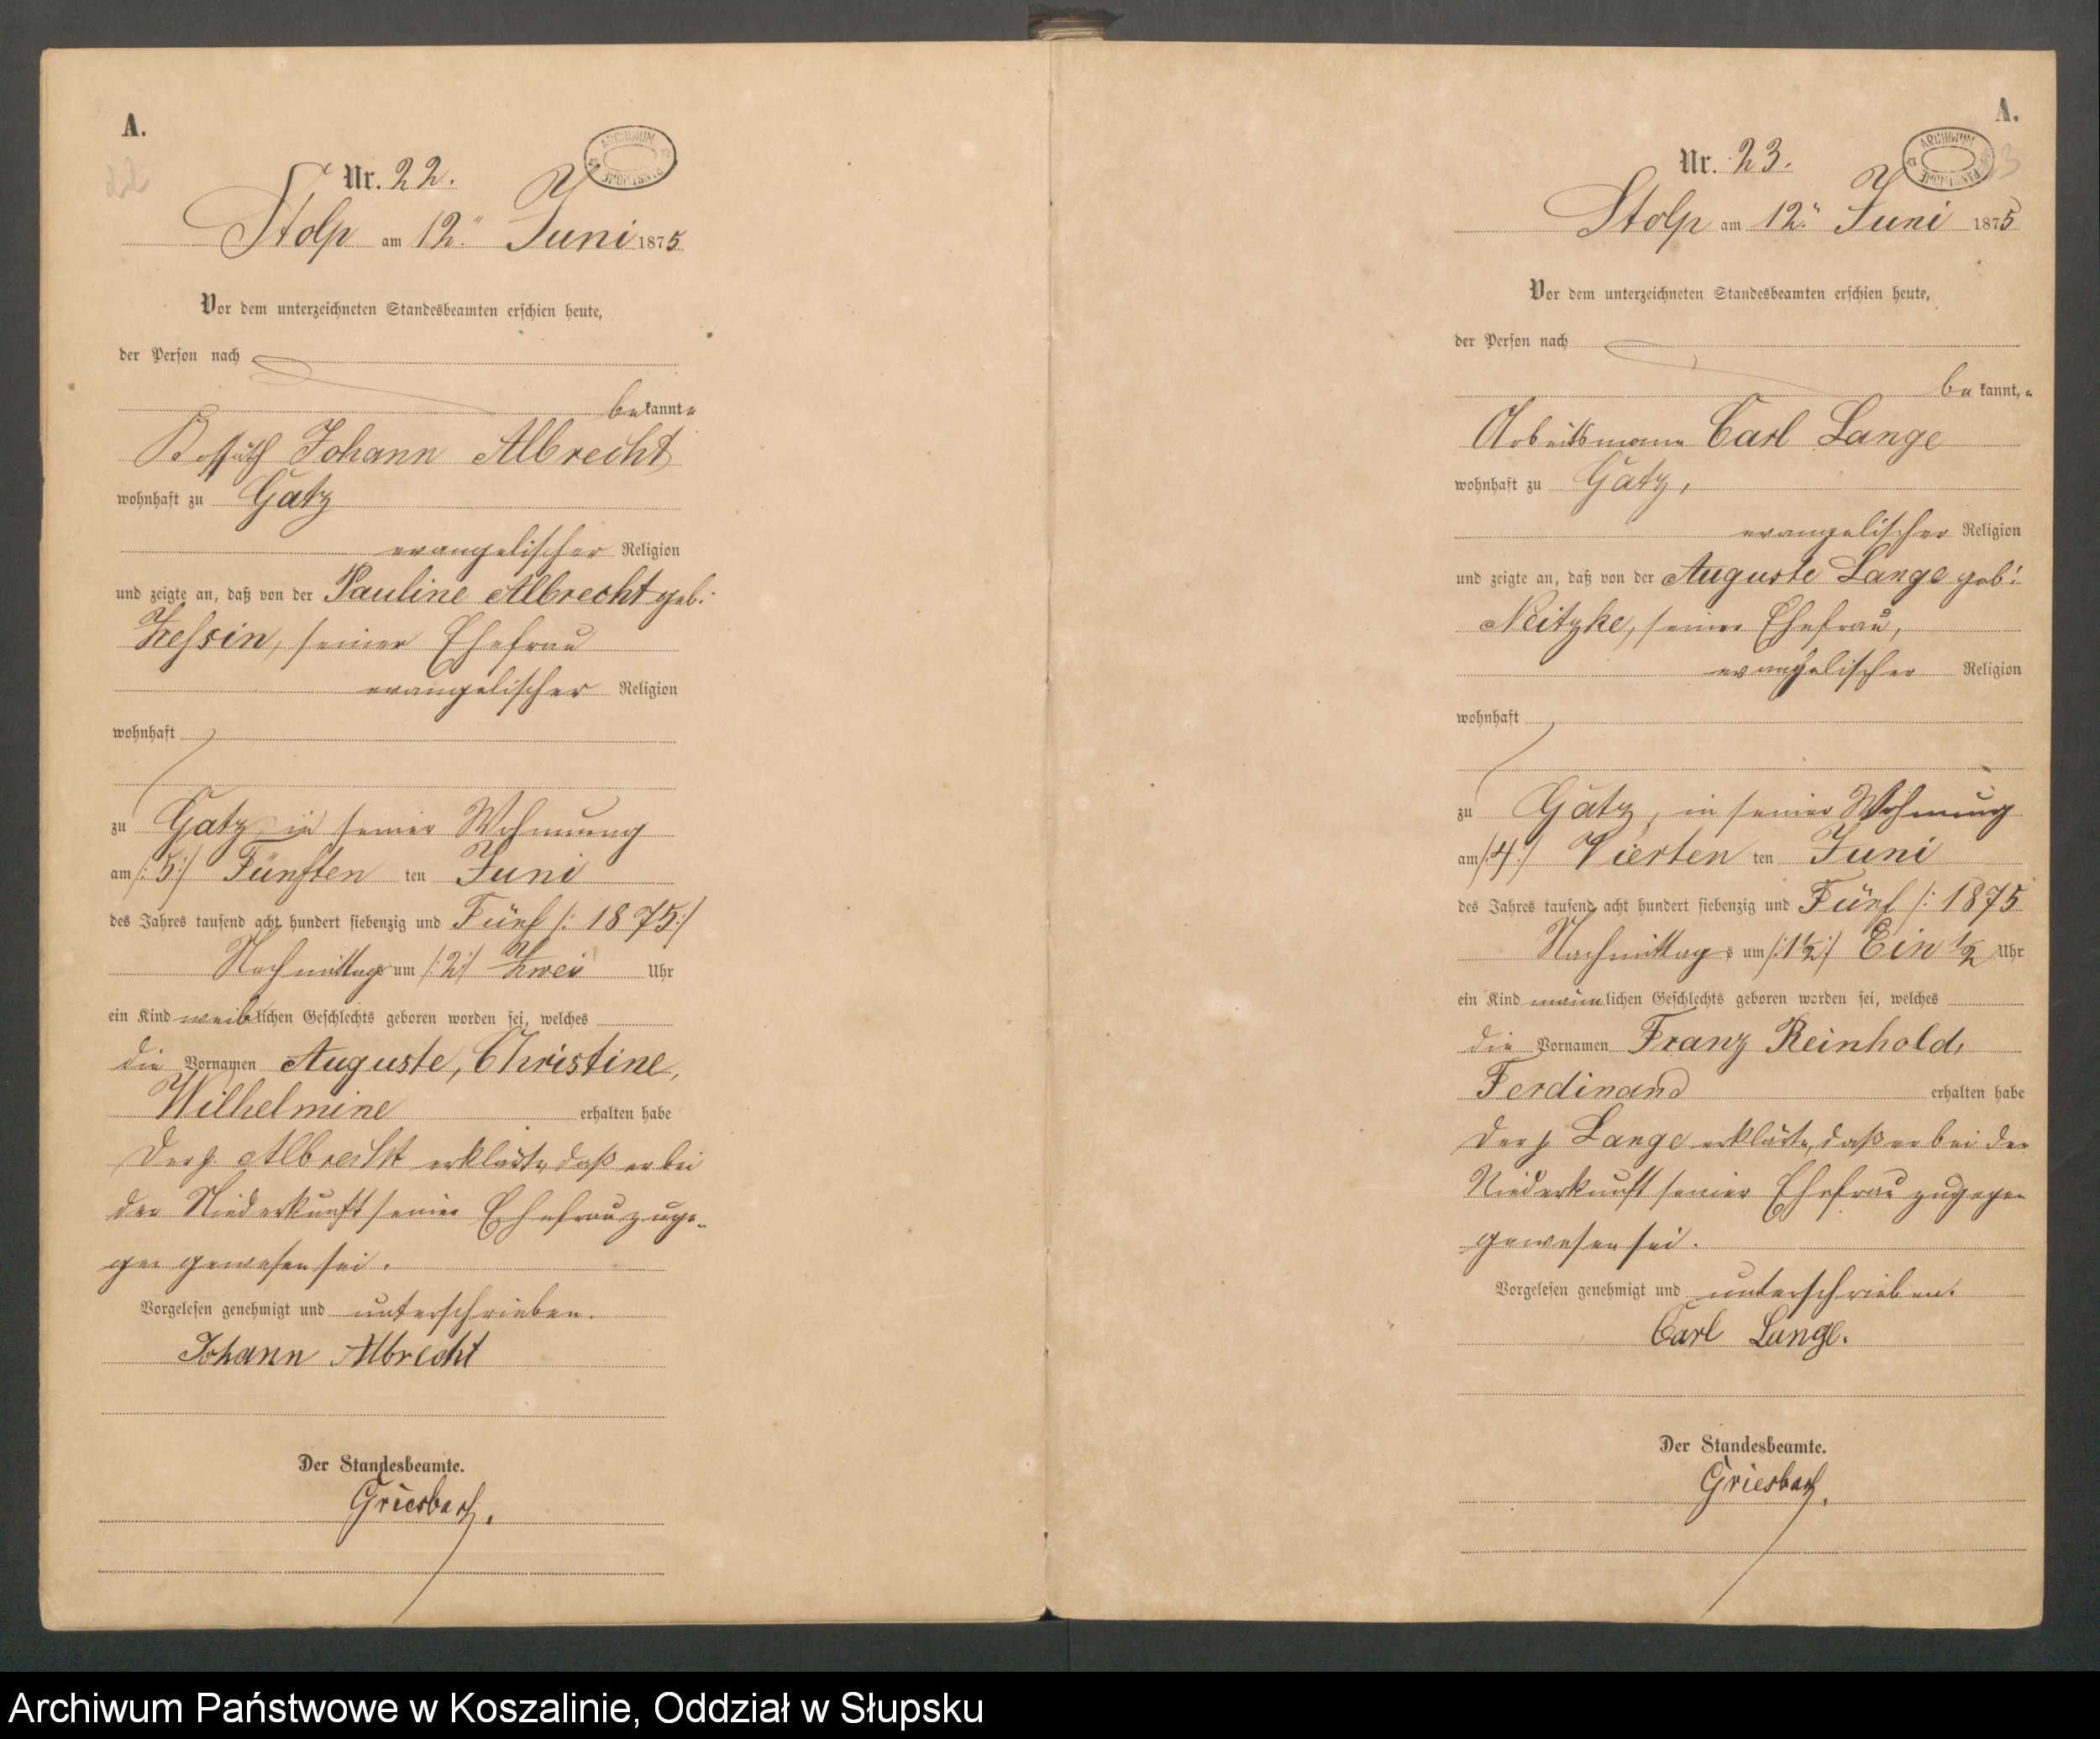 A.
Nr. 22.
ARCHIWUM PAŃSTWOWE
Stolp am 12." Juni 1875
Vor dem unterzeichneten Standesbeamten erschien heute,
der Person nach
bekannte
Kossäth Johann Albrecht
wohnhaft zu Gatz
evangelischer Religion
und zeigte an, daß von der Pauline Albrecht geb.
Zessin, seiner Ehefrau
evangelischer Religion
wohnhaft
zu Gatz in seiner Wohnung
am /:5:/ Fünften ten Juni
des Jahres tausend acht hundert siebenzig und Fünf /: 1875:/
Nachmittags um /:2:/ Zwei Uhr
ein Kind weiblichen Geschlechts geboren worden sei, welches
die Vornamen Auguste, Christine,
Wilhelmine erhalten habe
Der p. Albrecht erklärte, daß er bei
der Niederkunft seiner Ehefrau zuge-
gen gewesen sei.
Vorgelesen genehmigt und unterschrieben.
Johann Albrecht
Der Standesbeamte.
Griesbach.
A.
Nr. 23.
ARCHIWUM PAŃSTWOWE
23
Stolp am 12." Juni 1875
Vor dem unterzeichneten Standesbeamten erschien heute,
der Person nach
bekannt,e
Arbeitsmann Carl Lange
wohnhaft zu Gatz,
evangelischer Religion
und zeigte an, daß von der Auguste Lange geb.
Neitzke, seiner Ehefrau,
evangelischer Religion
wohnhaft
zu Gatz, in seiner Wohnung
am /:4:/ Vierten ten Juni
des Jahres tausend acht hundert siebenzig und Fünf /: 1875
Nachmittags um /:1½:/ Ein ½ Uhr
ein Kind männlichen Geschlechts geboren worden sei, welches
die Vornamen Franz Reinhold,
Ferdinand erhalten habe
Der p Lange erklärte, daß er bei der
Niederkunft seiner Ehefrau zugegen
gewesen sei.
Vorgelesen genehmigt und unterschrieben.
Carl Lange.
Der Standesbeamte.
Griesbach.
Archiwum Państwowe w Koszalinie, Oddział w Słupsku